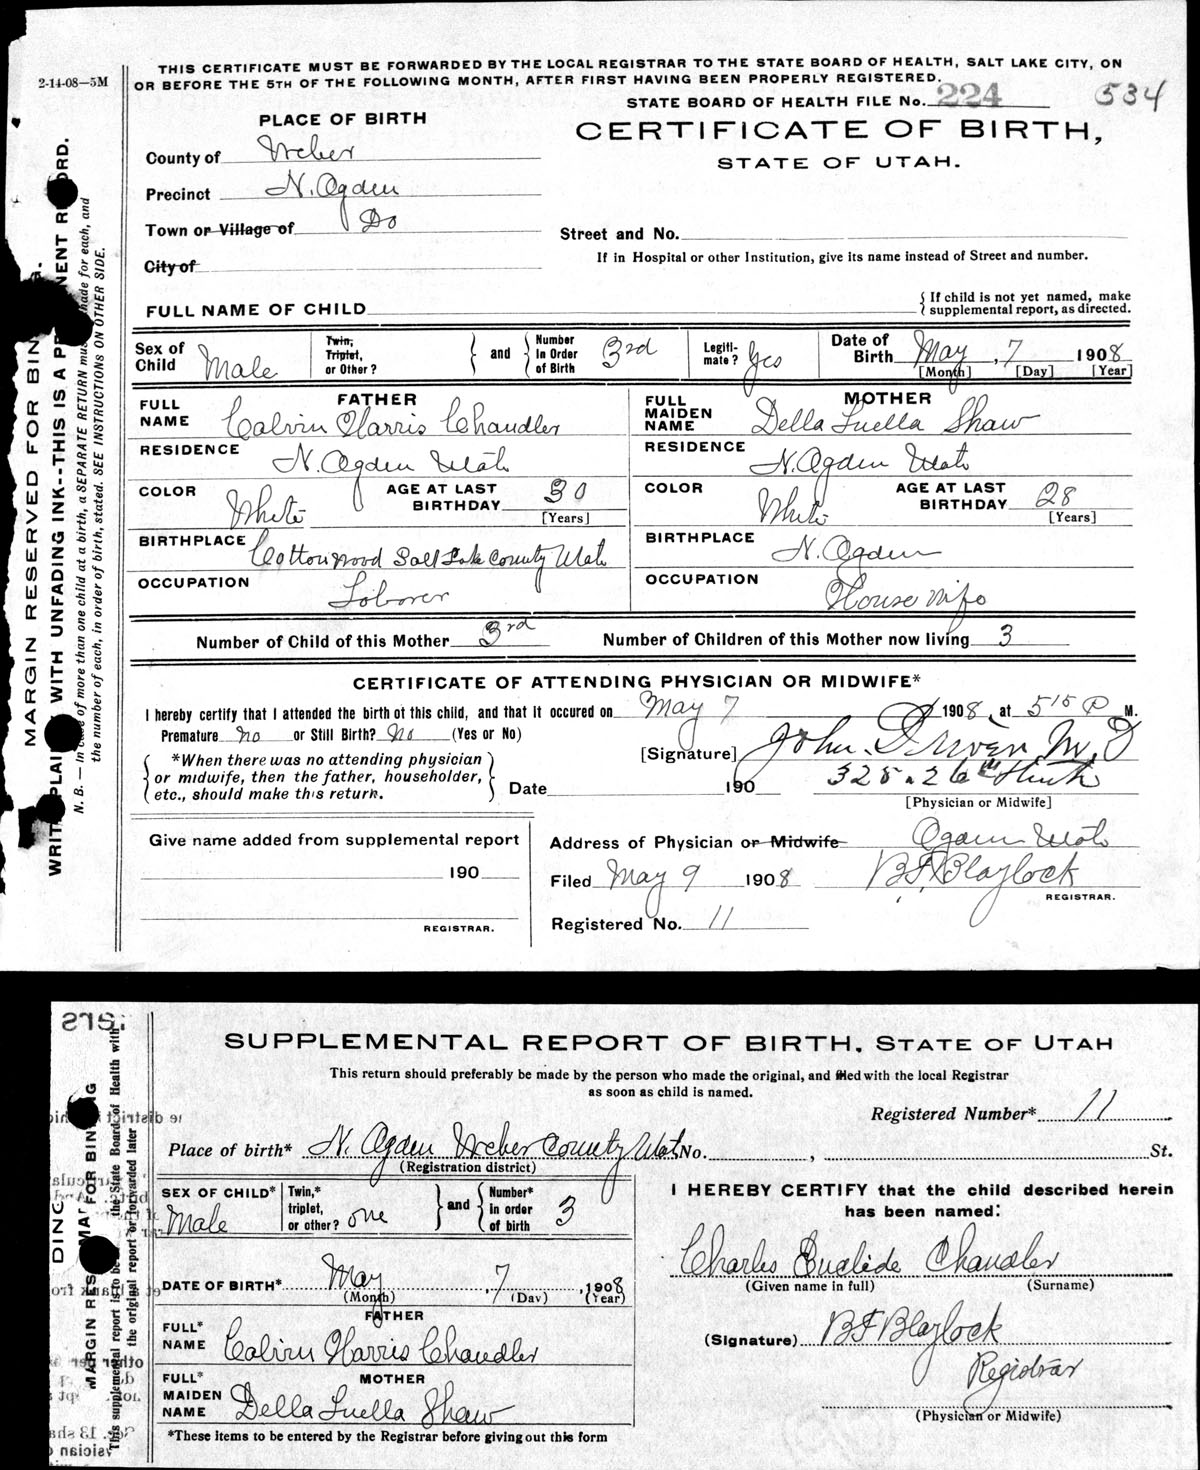 2-14-08—5M
THIS CERTIFICATE MUST BE FORWARDED BY THE LOCAL REGISTRAR TO THE STATE BOARD OF HEALTH, SALT LAKE CITY, ON
OR BEFORE THE 5TH OF THE FOLLOWING MONTH, AFTER FIRST HAVING BEEN PROPERLY REGISTERED.
STATE BOARD OF HEALTH FILE No. 224 534
PLACE OF BIRTH
CERTIFICATE OF BIRTH,
STATE OF UTAH.
County of Weber
Precinct N. Ogden
Town or Village of Do
Street and No.
If in Hospital or other Institution, give its name instead of Street and number.
City of
FULL NAME OF CHILD
{ If child is not yet named, make
supplemental report, as directed.
Sex of Child Male
Twin, Triplet, or Other? } and { Number in Order of Birth 3rd
Legitimate? Yes
Date of Birth May, 7 1908
[Month] [Day] [Year]
FATHER
FULL NAME Calvin Harris Chandler
RESIDENCE N. Ogden Utah
COLOR White AGE AT LAST BIRTHDAY 30
[Years]
BIRTHPLACE Cottonwood Salt Lake County Utah
OCCUPATION Laborer
MOTHER
FULL MAIDEN NAME Della Luella Shaw
RESIDENCE N. Ogden Utah
COLOR White AGE AT LAST BIRTHDAY 28
[Years]
BIRTHPLACE N. Ogden
OCCUPATION House wife
Number of Child of this Mother 3rd Number of Children of this Mother now living 3
CERTIFICATE OF ATTENDING PHYSICIAN OR MIDWIFE*
I hereby certify that I attended the birth of this child, and that it occured on May 7 1908, at 515 P M.
Premature no or Still Birth? No (Yes or No)
[Signature] John M.D
*When there was no attending physician
or midwife, then the father, householder,
etc., should make this return.
Date 190
328. 26th
[Physician or Midwife]
Give name added from supplemental report
190
REGISTRAR.
Address of Physician or Midwife Ogden Utah
Filed May 9 1908 B.F. Blaylock
REGISTRAR.
Registered No. 11
MARGIN RESERVED FOR BINDING.
WRITE PLAINLY WITH UNFADING INK--THIS IS A PERMANENT RECORD.
N. B.— In case of more than one child at a birth, a SEPARATE RETURN must be made for each, and
the number of each, in order of birth, stated. SEE INSTRUCTIONS ON OTHER SIDE.
SUPPLEMENTAL REPORT OF BIRTH, STATE OF UTAH
This return should preferably be made by the person who made the original, and filed with the local Registrar
as soon as child is named.
Registered Number* 11
Place of birth* N. Ogden Weber County Utah No. , St.
(Registration district)
SEX OF CHILD* Male
Twin,* triplet, or other? one } and { Number* in order of birth 3
DATE OF BIRTH* May, 7, 1908
(Month) (Day) (Year)
FATHER
FULL* NAME Calvin Harris Chandler
MOTHER
FULL* MAIDEN NAME Della Luella Shaw
*These items to be entered by the Registrar before giving out this form
I HEREBY CERTIFY that the child described herein
has been named:
Charles Chandler
(Given name in full) (Surname)
(Signature) B F Blaylock
Registrar
(Physician or Midwife)
This supplemental report is to be the State Board of Health with
the original report or forwarded later